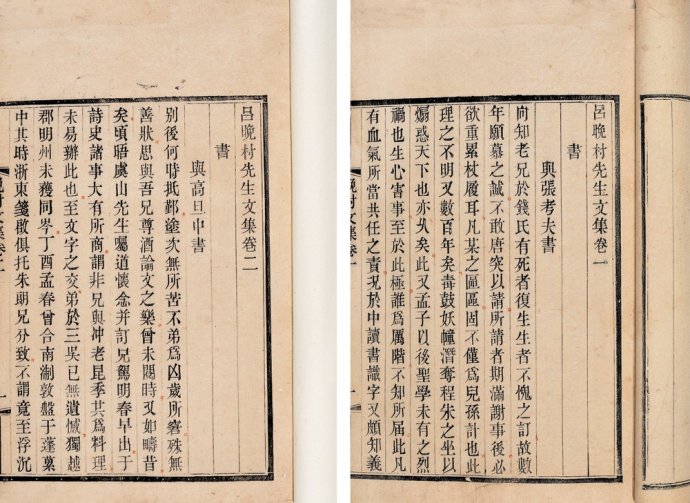 呂晚村先生文集卷一
書
與張考夫書
向知老兄於錢氏有死者復生生者不愧之訂故數
年願慕之誠不敢唐突以請所請者期滿謝事後必
欲重累杖履耳凡某之區區固不僅為兒孫計也此
理之不明又數百年矣毒鼓妖幢潛奪程朱之坐以
煽惑天下也亦久矣此又孟子以後聖學未有之烈
禍也生心害事至於此極誰為厲階不知所屆此凡
有血氣所當共任之責況於中讀書識字又頗知義
呂晚村先生文集卷二
書
與高旦中書
別後何時抵鄞塗次無所苦不弟為凶歲所窘殊無
善狀思與吾兄尊酒論文之樂曾未閱時又如疇昔
矣頃晤虞山先生囑道懷念并訂兄駕明春早出于
詩史諸事大有所商謂非兄與冲老昆季其為料理
未易辦此也至文字之交弟於三吳已無遺憾獨越
郡明州未獲同岑丁酉孟春曾合南湖敦盤于蓬萊
中其時浙東箋啟俱托朱朗兄分致不謂竟至浮沉
晚村文集卷二
晚村文集卷一